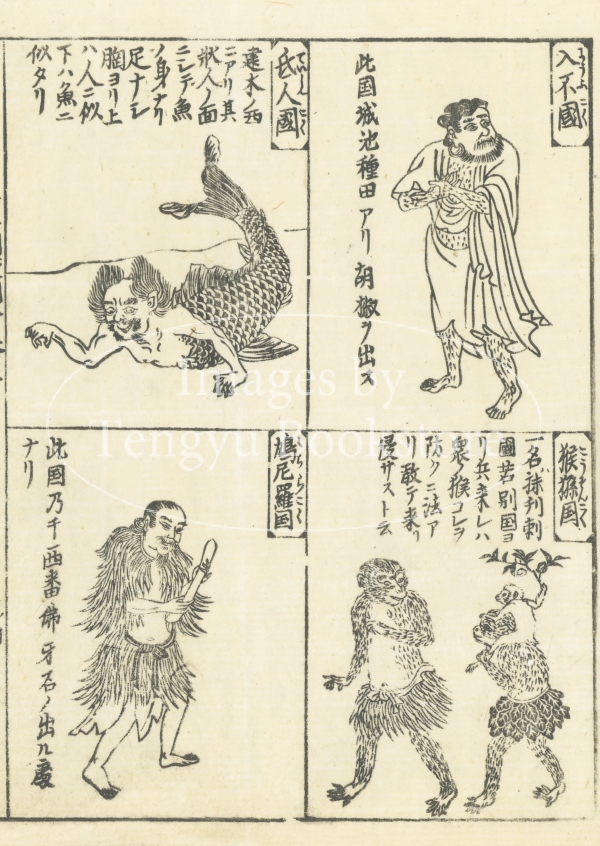 入不國
此国城池種田アリ胡椒ヲ出ス
氐人國
建木ノ西
ニアリ其
状人ノ面
ニシテ魚
ノ身ナリ
足ナシ
胸ヨリ上
ハ人ニ似
下ハ魚ニ
似タリ
猴猻国
一名抹利刺
國若別国ヨ
リ兵来レハ
衆猴コレヲ
防クニ法ア
リ敢テ来リ
侵サスト云
鳩尼羅国
此国乃千西番佛牙石ノ出ル處
ナリ
Images by
Tengyu Bookstore